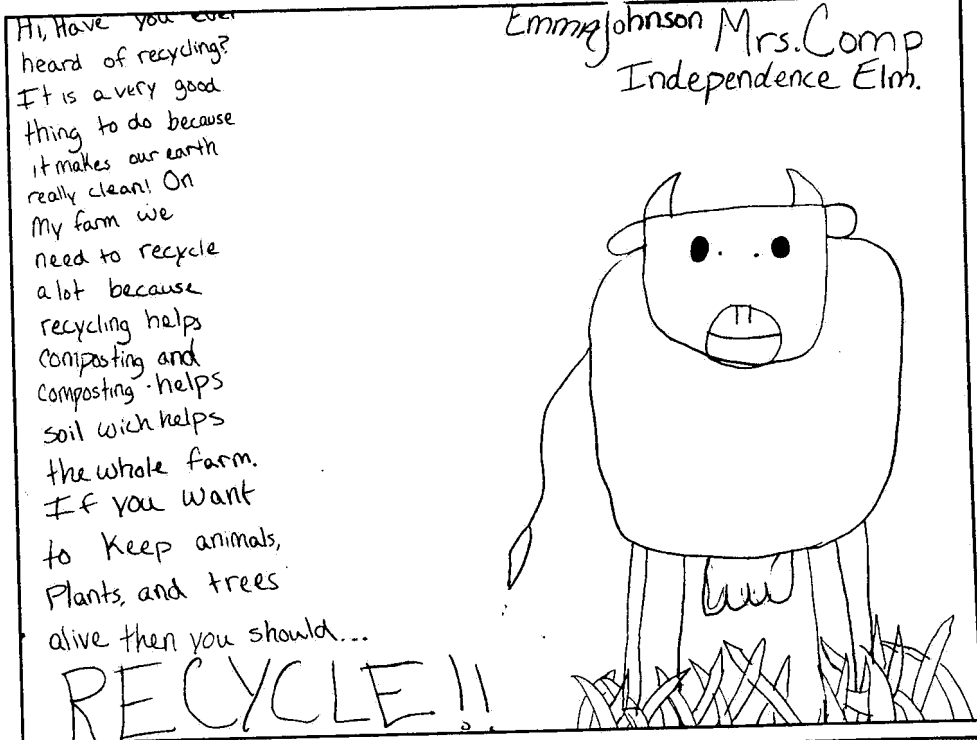 Hi, Have you ever
heard of recycling?
It is a very good
thing to do because
it makes our earth
really clean! On
My farm we
need to recycle
a lot because
recycling helps
composting and
composting helps
soil wich helps
the whole farm.
If you want
to Keep animals,
Plants, and trees
alive then you should...
RECYCLE!!
Emma Johnson Mrs. Comp
Independence Elm.